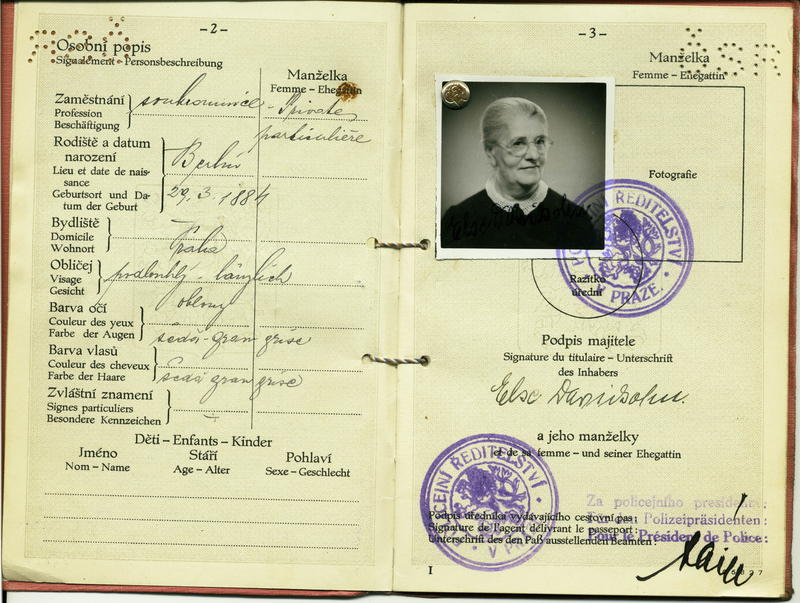 -2-
Osobní popis
Signalement - Personsbeschreibung
Manželka
Femme - Ehegattin
Zaměstnání
Profession
Beschäftigung
soukromnice - Private
particulière
Rodiště a datum
narození
Lieu et date de nais-
sance
Geburtsort und Da-
tum der Geburt
Berlin
29.3.1884
Bydliště
Domicile
Wohnort
Praha
Obličej
Visage
Gesicht
podlouhlý - länglich
oblong
Barva očí
Couleur des yeux
Farbe der Augen
šedá - grau grise
Barva vlasů
Couleur des cheveux
Farbe der Haare
šedá grau grise
Zvláštní znamení
Signes particuliers
Besondere Kennzeichen
Děti - Enfants - Kinder
Jméno
Nom - Name
Stáří
Age - Alter
Pohlaví
Sexe - Geschlecht
-3-
Manželka
Femme - Ehegattin
Fotografie
Razítko
úřední
POLICEJNÍ ŘEDITELSTVÍ
V PRAZE.
Podpis majitele
Signature du titulaire - Unterschrift
des Inhabers
Else Davidsohn.
a jeho manželky
et de sa femme - und seiner Ehegattin
POLICEJNÍ ŘEDITELSTVÍ
V PRAZE
Za policejního presidenta:
Für den Polizeipräsidenten:
Pour le Président de Police:
Podpis úředníka vydávajícího cestovní pas:
Signature de l'agent délivrant le passeport:
Unterschrift des den Paß ausstellenden Beamten:
I